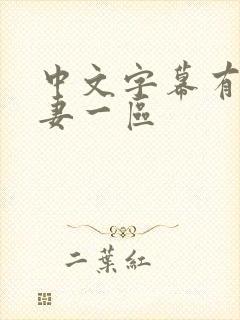 中文字幕有
妻一區
二葉紅